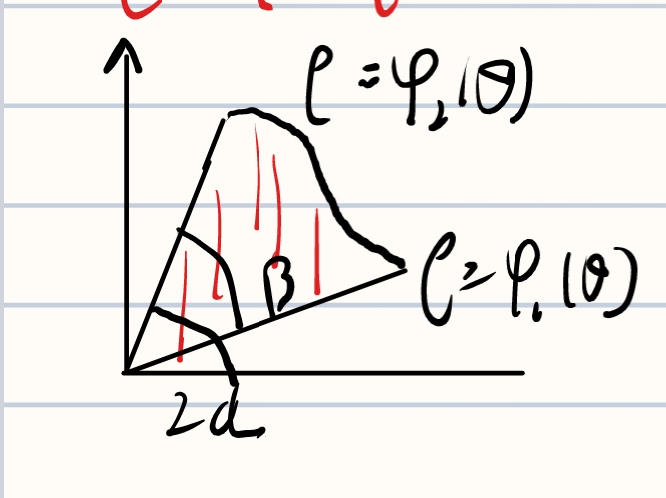 ρ = φ₂(θ)
β
ρ = φ₁(θ)
2α